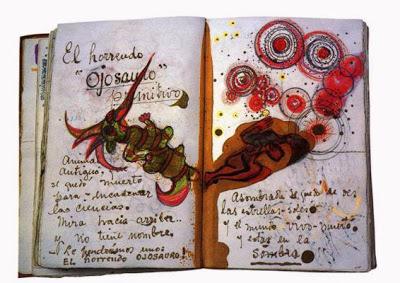 El horrendo
"OJOSAURO"
primitivo
Animal
antiguo,
se quedó muerto
para encadenar
las ciencias.
Mira hacia arriba..
y no tiene nombre.
- Le pondremos uno:
EL horrendo OJOSAURO!
Asombrada de ver
las estrellas-soles
y el mundo vivo-muerto
y estar en la
sombra